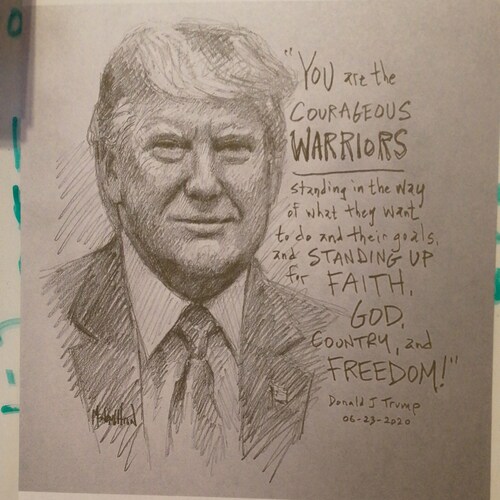 "YOU are the
COURAGEOUS
WARRIORS
standing in the way
of what they want
to do and their goals,
and STANDING UP
for FAITH,
GOD,
COUNTRY, and
FREEDOM!"
Donald J Trump
06-23-2020